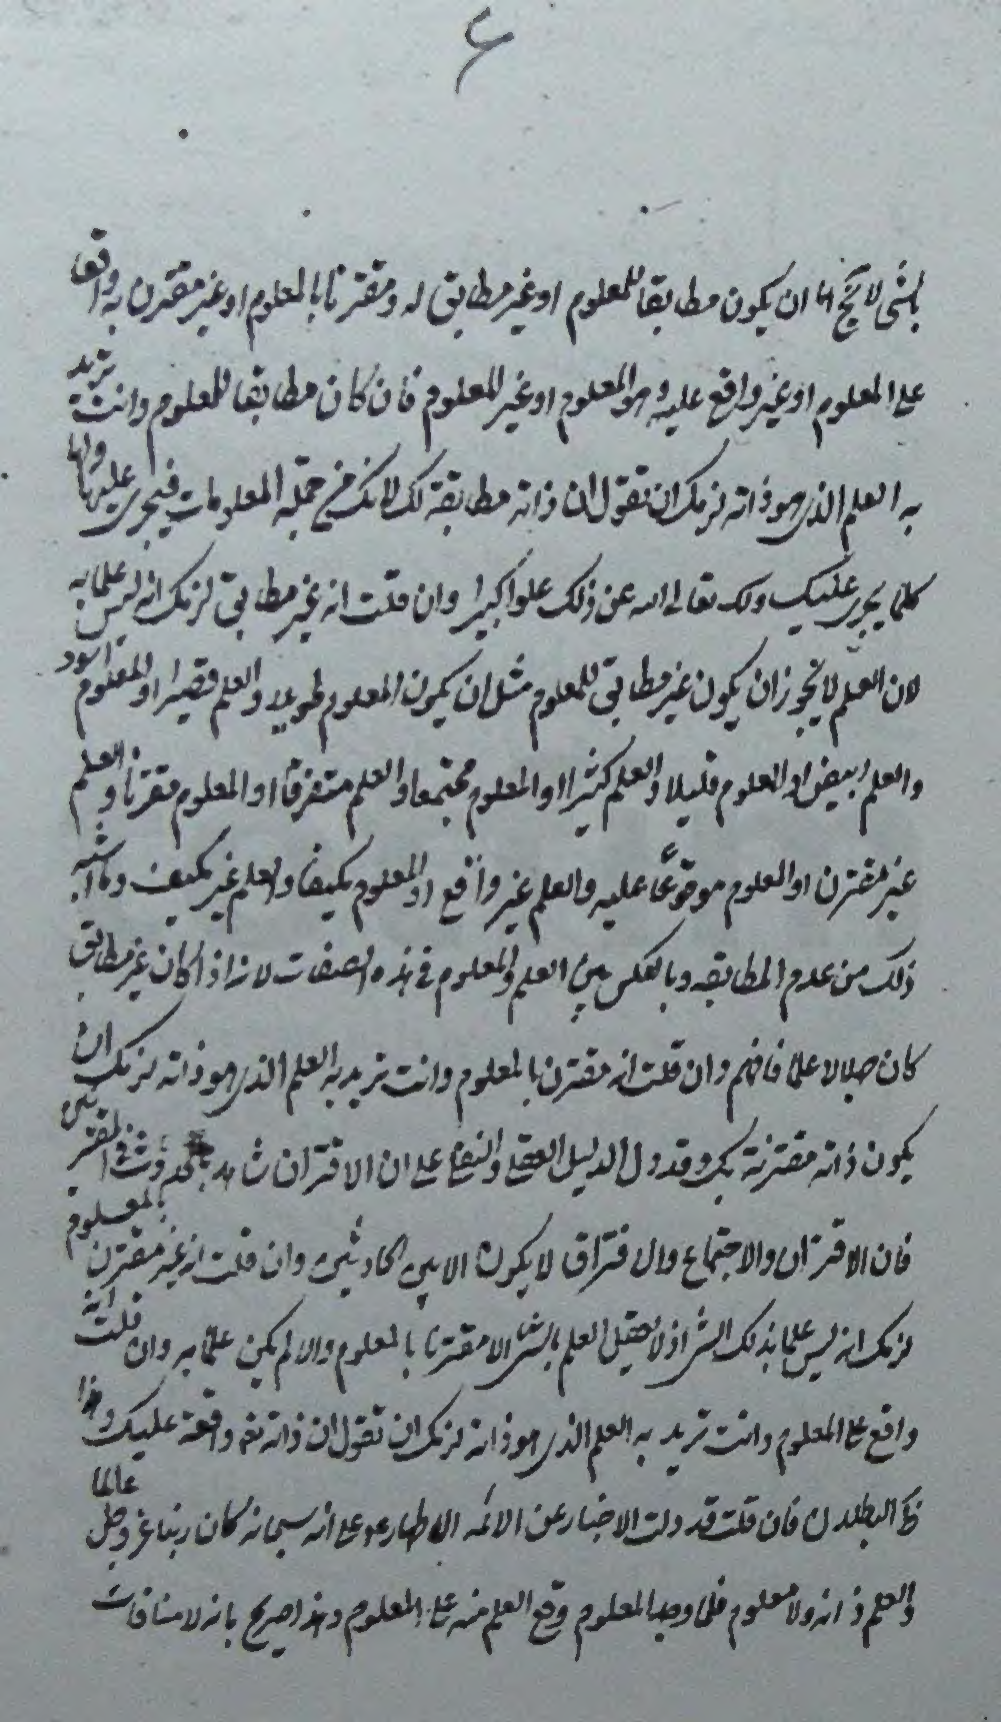 ع
بالشئ لا يخ اما ان يكون مطابقا للمعلوم او غير مطابق له ومقترنا بالمعلوم او غير مقترن به واقعا
على المعلوم او غير واقع عليه وهو المعلوم او غير المعلوم فان كان مطابقا للمعلوم وانت تريد
به العلم الذى هو ذاته لزمك ان تقول ان ذاته مطابقة لك لانك من جملة المعلومات فيجرى عليها ولها
كلما يجرى عليك ولك تعالى الله عن ذلك علوا كبيرا وان قلت انه غير مطابق لزمك انه ليس علما به
لان العلم لا يجوز ان يكون غير مطابق للمعلوم مثل ان يكون المعلوم طويلا والعلم قصيرا او المعلوم اسود
والعلم ابيض او المعلوم قليلا والعلم كثيرا او المعلوم مجتمعا والعلم متفرقا او المعلوم مقترنا والعلم
غير مقترن او المعلوم موقوعًا عليه والعلم غير واقع او المعلوم مكيفا والعلم غير مكيف وما اشبه
ذلك من عدم المطابقه وبالعكس بين العلم والمعلوم فى هذه الصفات لانه اذا كان غير مطابق
كان جهلا لا علما فافهم وان قلت انه مقترن بالمعلوم وانت تريد به العلم الذى هو ذاته لزمك ان
يكون ذاته مقترنة بك وقد دل الدليل العقلى والنقلى على ان الاقتران شاهد بحدوث المقترنين
فان الاقتران والاجتماع والافتراق لا يكون الا بين الحادثين وان قلت انه غير مقترن بالمعلوم
لزمك انه ليس علما بذلك الشئ اذ لا يعقل العلم بالشئ الا مقترنا بالمعلوم والا لم يكن علما به وان قلت انه
واقع على المعلوم وانت تريد به العلم الذى هو ذاته لزمك ان تقول ان ذاته تعا واقعة عليك وهذا
ظ البطلان فان قلت قد دلت الاخبار عن الائمه الاطهار ع على انه سبحانه كان ربنا عز وجل عالما
والعلم ذاته ولا معلوم فلما وجد المعلوم وقع العلم منه على المعلوم وهذا صريح بانه لا منافات